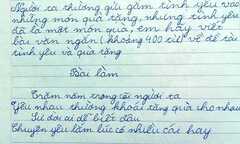 Người ta thường gửi gắm tình yêu vào
những món quà tặng, nhưng tình yêu
đã là một món quà, em hãy viết
bài văn ngắn khoảng 400 chữ về đề tài
tình yêu và quà tặng
Bài làm
Trăm năm trong cõi người ta
Yêu nhau thường khoái tặng quà cho nhau
Từ đời ai để biết đâu
Chuyện yêu lắm lúc có nhiều cái hay